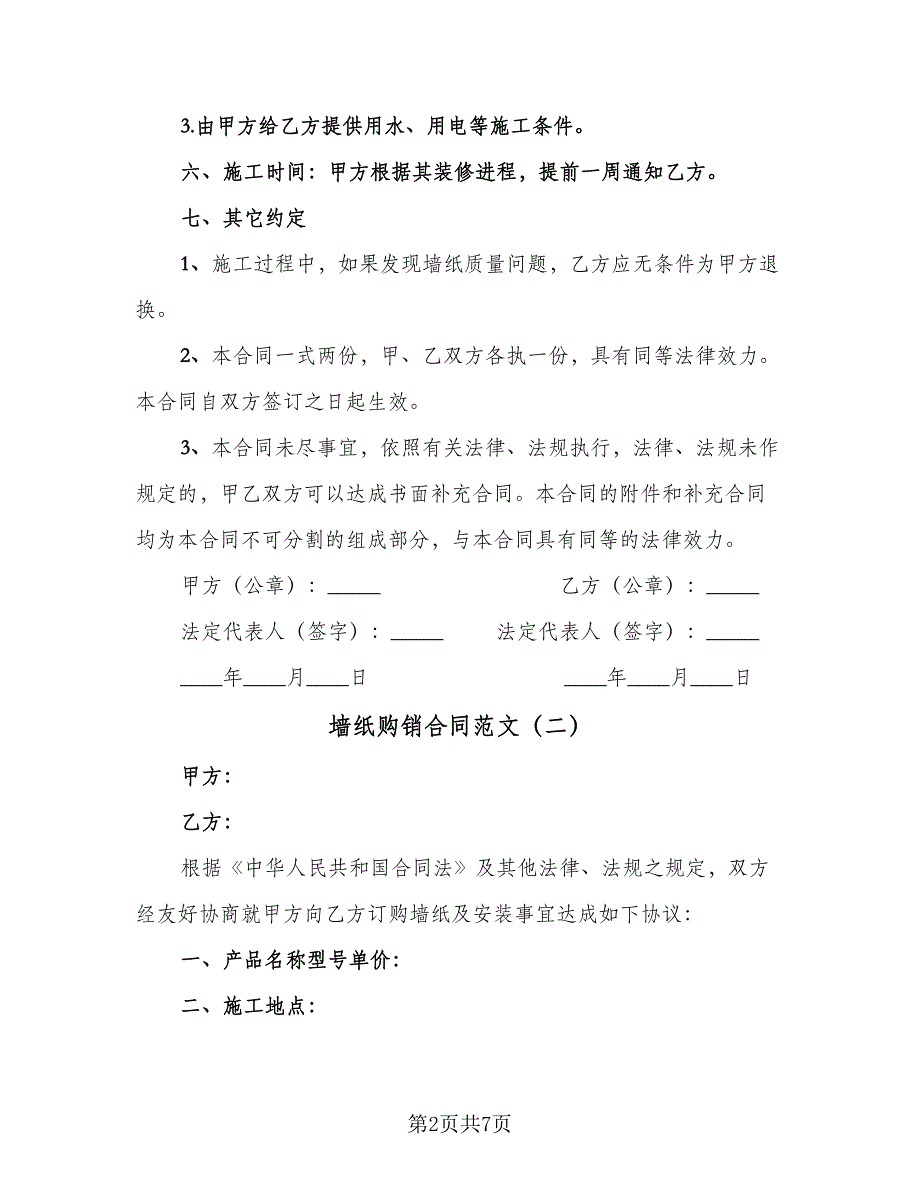 3.由甲方给乙方提供用水、用电等施工条件。
六、施工时间：甲方根据其装修进程，提前一周通知乙方。
七、其它约定
1、施工过程中，如果发现墙纸质量问题，乙方应无条件为甲方退
换。
2、本合同一式两份，甲、乙双方各执一份，具有同等法律效力。
本合同自双方签订之日起生效。
3、本合同未尽事宜，依照有关法律、法规执行，法律、法规未作
规定的，甲乙双方可以达成书面补充合同。本合同的附件和补充合同
均为本合同不可分割的组成部分，与本合同具有同等的法律效力。
甲方（公章）：_____ 乙方（公章）：_____
法定代表人（签字）：_____ 法定代表人（签字）：_____
____年____月____日 ____年____月____日
墙纸购销合同范文（二）
甲方：
乙方：
根据《中华人民共和国合同法》及其他法律、法规之规定，双方
经友好协商就甲方向乙方订购墙纸及安装事宜达成如下协议：
一、产品名称型号单价：
二、施工地点：
第2页共7页